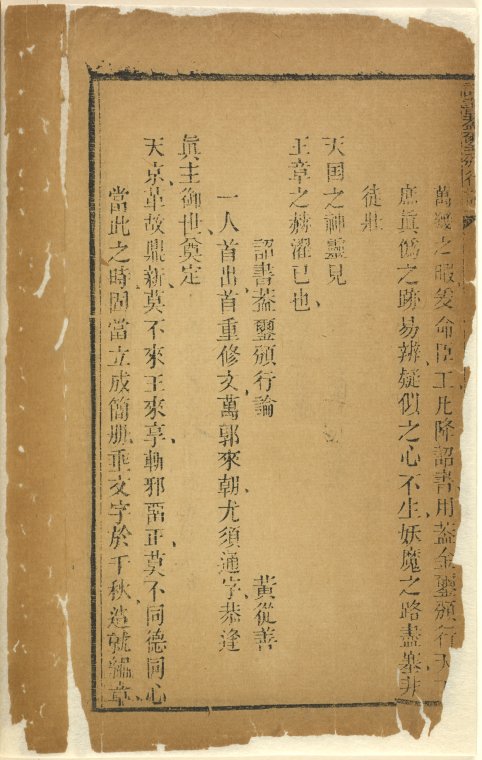 萬幾之暇爰命臣工凡降詔書用蓋金璽頒行天
庶眞僞之跡易辨、疑似之心不生、妖魔之路盡塞、非
徒壯
天国之神靈見
王章之赫濯已也、
詔書蓋璽頒行論　黃從善
一人首出、首重修文、萬郭來朝、尤須通字、恭逢
眞主御世奠定
天京、革故鼎新、莫不來王來享、斬邪留正、莫不同德同心
當此之時、固當立成簡册、垂文字於千秋、造就編章、